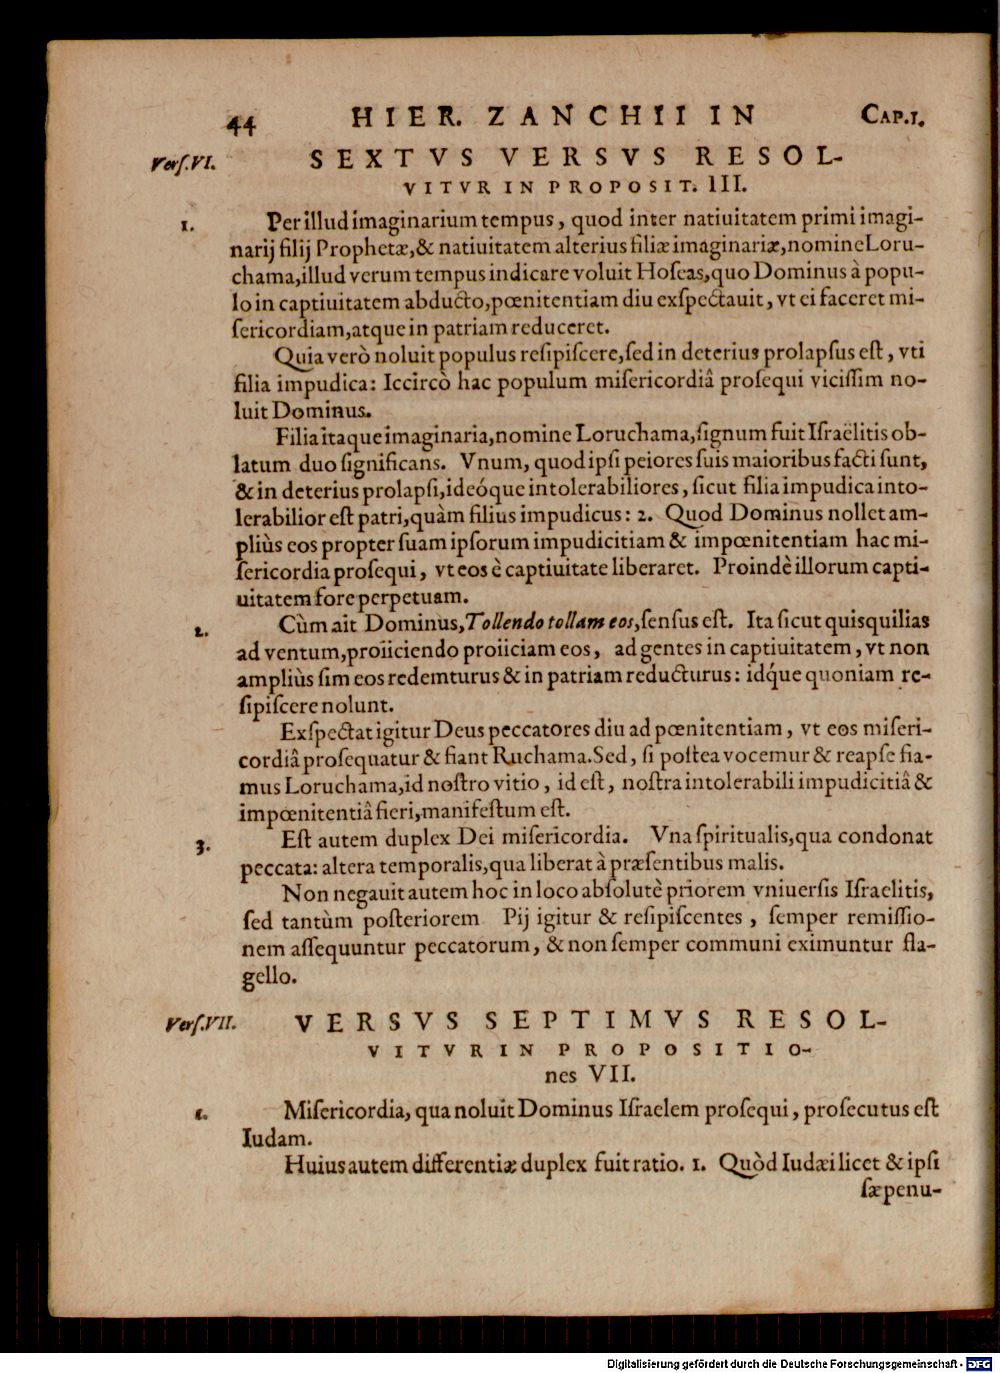 44 HIER. ZANCHII IN CAP.I.
Verſ.VI. SEXTVS VERSVS RESOL-
VITVR IN PROPOSIT. III.
1. Per illud imaginarium tempus, quod inter natiuitatem primi imagi-
narij filij Prophetæ,& natiuitatem alterius filiæ imaginariæ, nomine Loru-
chama, illud verum tempus indicare voluit Hoſeas, quo Dominus à popu-
lo in captiuitatem abducto, pœnitentiam diu exſpectauit, vt ei faceret mi-
ſericordiam, atque in patriam reduceret.
Quia verò noluit populus reſipiſcere, ſed in deterius prolapſus eſt, vti
filia impudica: Iccircò hac populum miſericordiâ proſequi viciſſim no-
luit Dominus.
Filia itaque imaginaria, nomine Loruchama, ſignum fuit Iſraëlitis ob-
latum duo ſignificans. Vnum, quod ipſi peiores ſuis maioribus facti ſunt,
& in deterius prolapſi, ideóque intolerabiliores, ſicut filia impudica into-
lerabilior eſt patri, quàm filius impudicus: 2. Quod Dominus nollet am-
pliùs eos propter ſuam ipſorum impudicitiam & impœnitentiam hac mi-
ſericordia proſequi, vt eos è captiuitate liberaret. Proindè illorum capti-
uitatem fore perpetuam.
2. Cùm ait Dominus, Tollendo tollam eos, ſenſus eſt. Ita ſicut quisquilias
ad ventum, proiiciendo proiiciam eos, ad gentes in captiuitatem, vt non
ampliùs ſim eos redemturus & in patriam reducturus: idq́ue quoniam re-
ſipiſcere nolunt.
Exſpectat igitur Deus peccatores diu ad pœnitentiam, vt eos miſeri-
cordiâ proſequatur & fiant Ruchama. Sed, ſi poſtea vocemur & reapſe fia-
mus Loruchama, id noſtro vitio, id eſt, noſtra intolerabili impudicitiâ &
impœnitentiâ fieri, manifeſtum eſt.
3. Eſt autem duplex Dei miſericordia. Vna ſpiritualis, qua condonat
peccata: altera temporalis, qua liberat à præſentibus malis.
Non negauit autem hoc in loco abſolutè priorem vniuerſis Iſraelitis,
ſed tantùm poſteriorem Pij igitur & reſipiſcentes, ſemper remiſſio-
nem aſſequuntur peccatorum, & non ſemper communi eximuntur fla-
gello.
Verſ.VII. VERSVS SEPTIMVS RESOL-
VITVR IN PROPOSITIO-
nes VII.
1. Miſericordia, qua noluit Dominus Iſraelem proſequi, proſecutus eſt
Iudam.
Huius autem differentiæ duplex fuit ratio. 1. Quòd Iudæi licet & ipſi
ſæpenu-
Digitalisierung gefördert durch die Deutsche Forschungsgemeinschaft - DFG